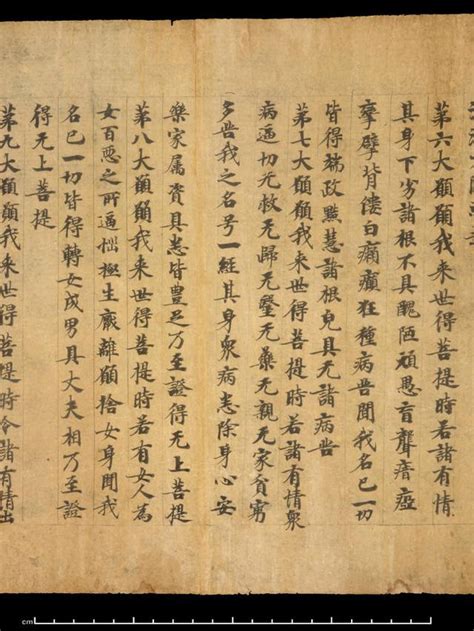 苐六大願願我来世得菩提時若諸有情
其身下劣諸根不具醜陋頑愚盲聾瘖瘂
攣躄背僂白癩癲狂種病苦聞我名已一切
皆得端政黠慧諸根皃具无諸病苦
苐七大願願我来世得菩提時若諸有情衆
病逼切无救无歸无醫无藥无親无家貧窮
多苦我之名号一經其身衆病悉除身心安
樂家属資具悉皆豊足乃至證得无上菩提
苐八大願願我来世得菩提時若有女人為
女百惡之所逼惱極生厭離願捨女身聞我
名已一切皆得轉女成男具丈夫相乃至證
得无上菩提
苐九大願願我来世得菩提時令諸有情出
cm